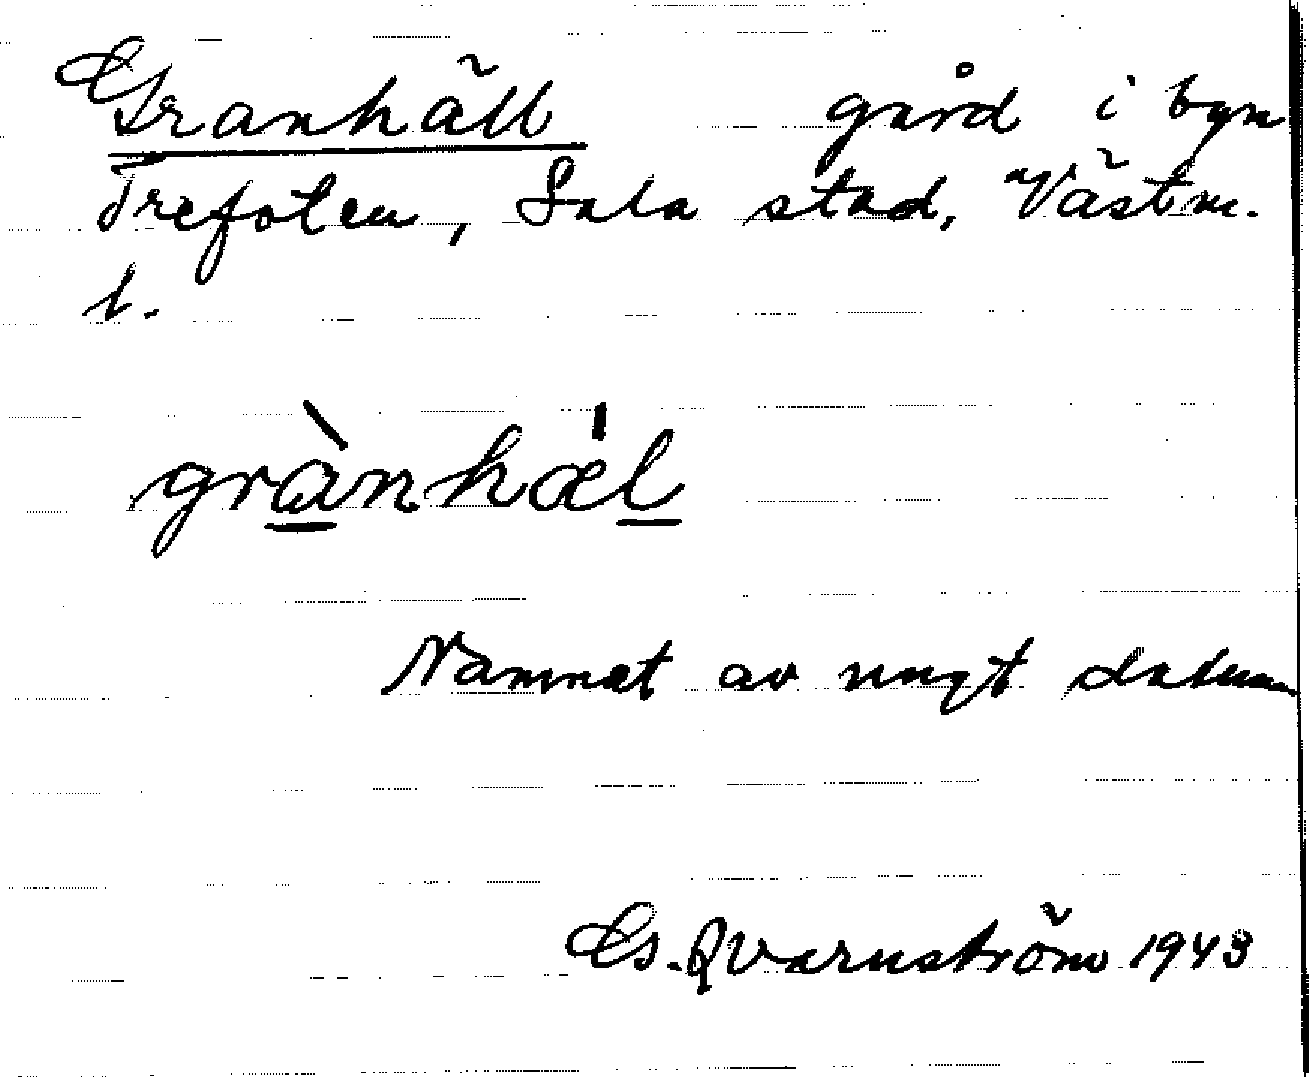 Granhäll gård i byn
Trefoten, Sala stad, Västm.
l.
grànhæ̍l
Namnet av ungt datum
G. Qvarnström 1943